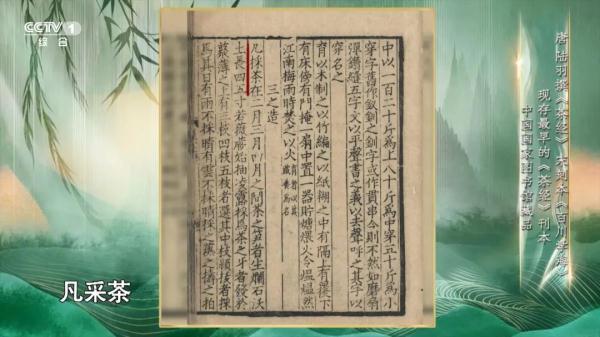 CCTV 1
综合
唐 陆羽撰《茶经》 宋刻本《百川学海》
现存最早的《茶经》刊本
中国国家图书馆藏品
中以一百二十斤為上八十斤為中穿五十斤為小
穿字舊作釵釧之釧字或作貫串今則不然如磨扇
彈鑽縫五字文以平聲書之義以去聲呼之其字以
穿名之
育以木制之以竹編之以紙糊之中有隔上有覆下
有床傍有門掩一扇中置一器貯煻煨火令熅熅然
江南梅雨時焚之以火 育者以其藏養為名
三之造
凡採茶在二月三月四月之間茶之笋者生爛石沃
土長四五寸若薇蕨始抽凌露採焉茶之牙者發於
藂薄之上有三枝四枝五枝者選其中枝穎拔者採
焉其日有雨不採晴有雲不採晴採之蒸之擣之拍
凡采茶